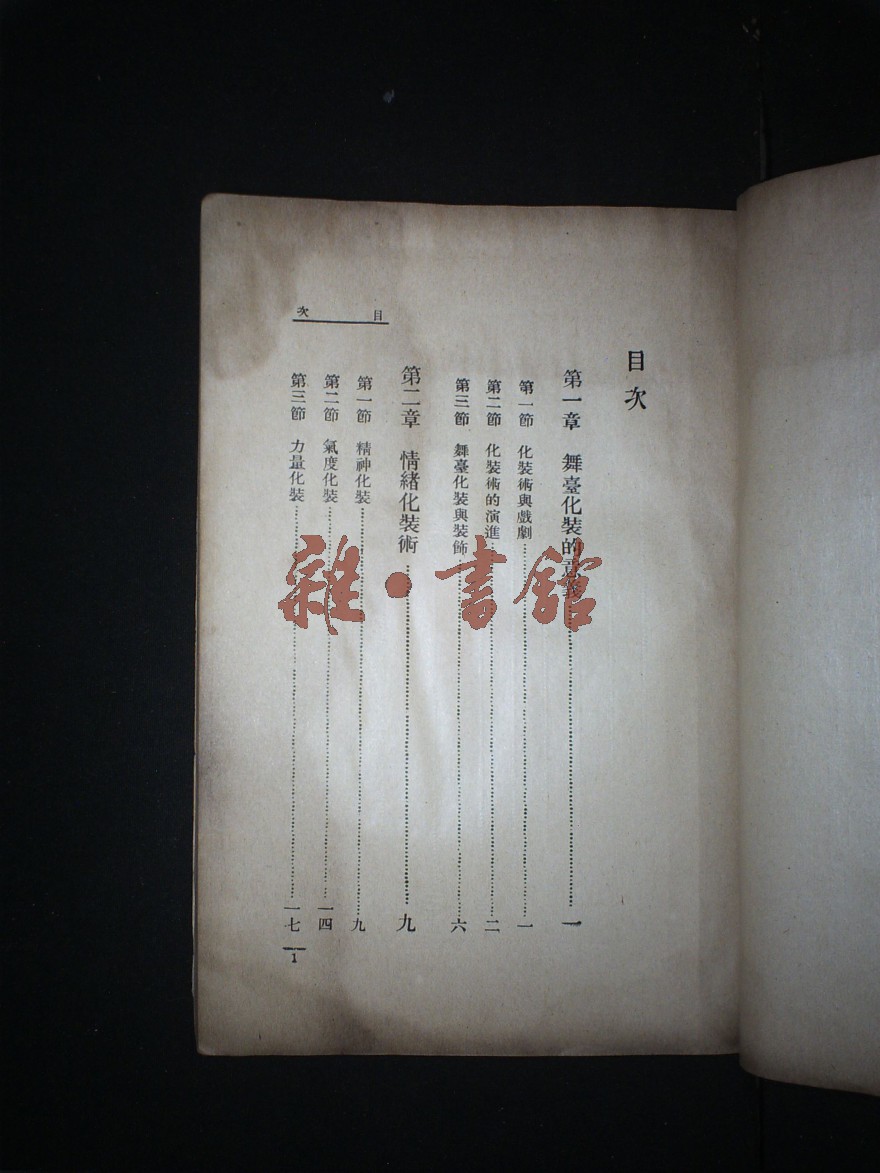 目次
第一章 舞臺化裝的意義……一
第一節 化裝術與戲劇……一
第二節 化裝術的演進……二
第三節 舞臺化裝與裝飾……六
第二章 情緒化裝術……九
第一節 精神化裝……九
第二節 氣度化裝……一四
第三節 力量化裝……一七
目次
1
雜·書館